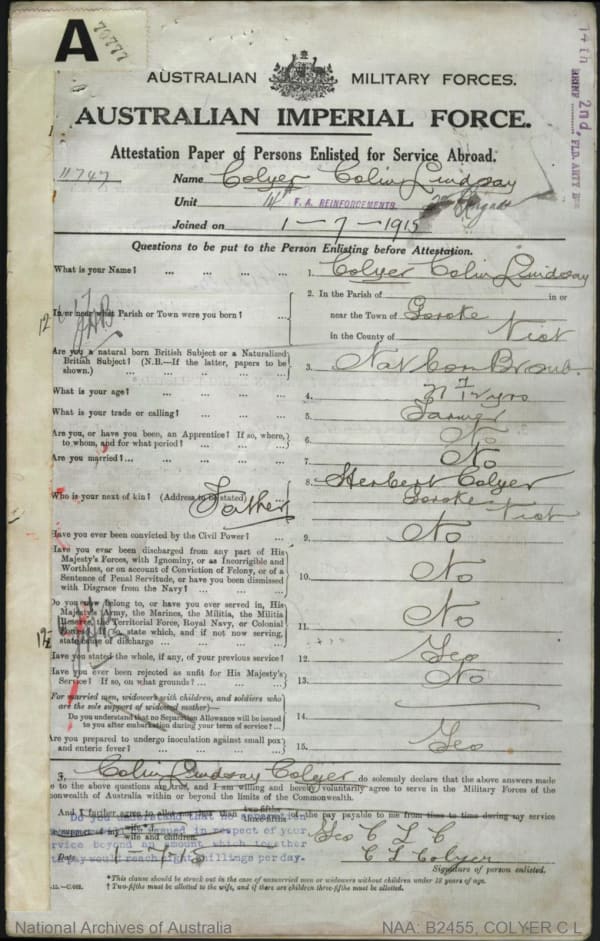 A 70777
AUSTRALIAN MILITARY FORCES.
AUSTRALIAN IMPERIAL FORCE.
Attestation Paper of Persons Enlisted for Service Abroad.
11747 Name Colyer Colin Lindsay
Unit 14th F. A. REINFORCEMENTS.
Joined on 1-7-1915
2nd. FLD ARTY B
Questions to be put to the Person Enlisting before Attestation.
What is your Name? ... ... ... ... 1. Colyer Colin Lindsay
In or near what Parish or Town were you born? ... 2. In the Parish of in or
near the Town of Goroke
in the County of Vict
Are you a natural born British Subject or a Naturalized British Subject? (N.B.—If the latter, papers to be shown.) ... ... ... ... 3. Nat born Br sub.
What is your age? ... ... ... ... 4. 21 yrs
What is your trade or calling? ... ... ... 5. Farmer
Are you, or have you been, an Apprentice? If so, where, to whom, and for what period? ... ... ... 6. No
Are you married? ... ... ... ... 7. No
Who is your next of kin? (Address to be stated) Father 8. Herbert Colyer
Goroke
Vict
Have you ever been convicted by the Civil Power? ... 9. No
Have you ever been discharged from any part of His Majesty's Forces, with Ignominy, or as Incorrigible and Worthless, or on account of Conviction of Felony, or of a Sentence of Penal Servitude, or have you been dismissed with Disgrace from the Navy? ... ... ... 10. No
Do you now belong to, or have you ever served in, His Majesty's Army, the Marines, the Militia, the Militia Reserve, the Territorial Force, Royal Navy, or Colonial Forces? If so, state which, and if not now serving, state cause of discharge ... ... ... 11. No
Have you stated the whole, if any, of your previous service? 12. Yes
Have you ever been rejected as unfit for His Majesty's Service? If so, on what grounds? ... ... ... 13. No
For married men, widowers with children, and soldiers who are the sole support of widowed mother)—
Do you understand that no Separation Allowance will be issued to you after embarkation during your term of service? ... 14.
Are you prepared to undergo inoculation against small pox and enteric fever? ... ... ... ... 15. Yes
I, Colin Lindsay Colyer do solemnly declare that the above answers made
to the above questions are true, and I am willing and hereby voluntarily agree to serve in the Military Forces of the
Commonwealth of Australia within or beyond the limits of the Commonwealth.
And I further agree to allot not less than two-fifths three-fifths of the pay payable to me from time to time during my service
support of my wife wife and children.
Do you understand that no Separation
issued in respect of your
service beyond an amount which together
pay would reach eight shillings per day.
Yes C L C
Date 1-7-15 C L Colyer
Signature of person enlisted.
*This clause should be struck out in the case of unmarried men or widowers without children under 18 years of age.
† Two-fifths must be allotted to the wife, and if there are children three-fifths must be allotted.
National Archives of Australia NAA: B2455, COLYER C L